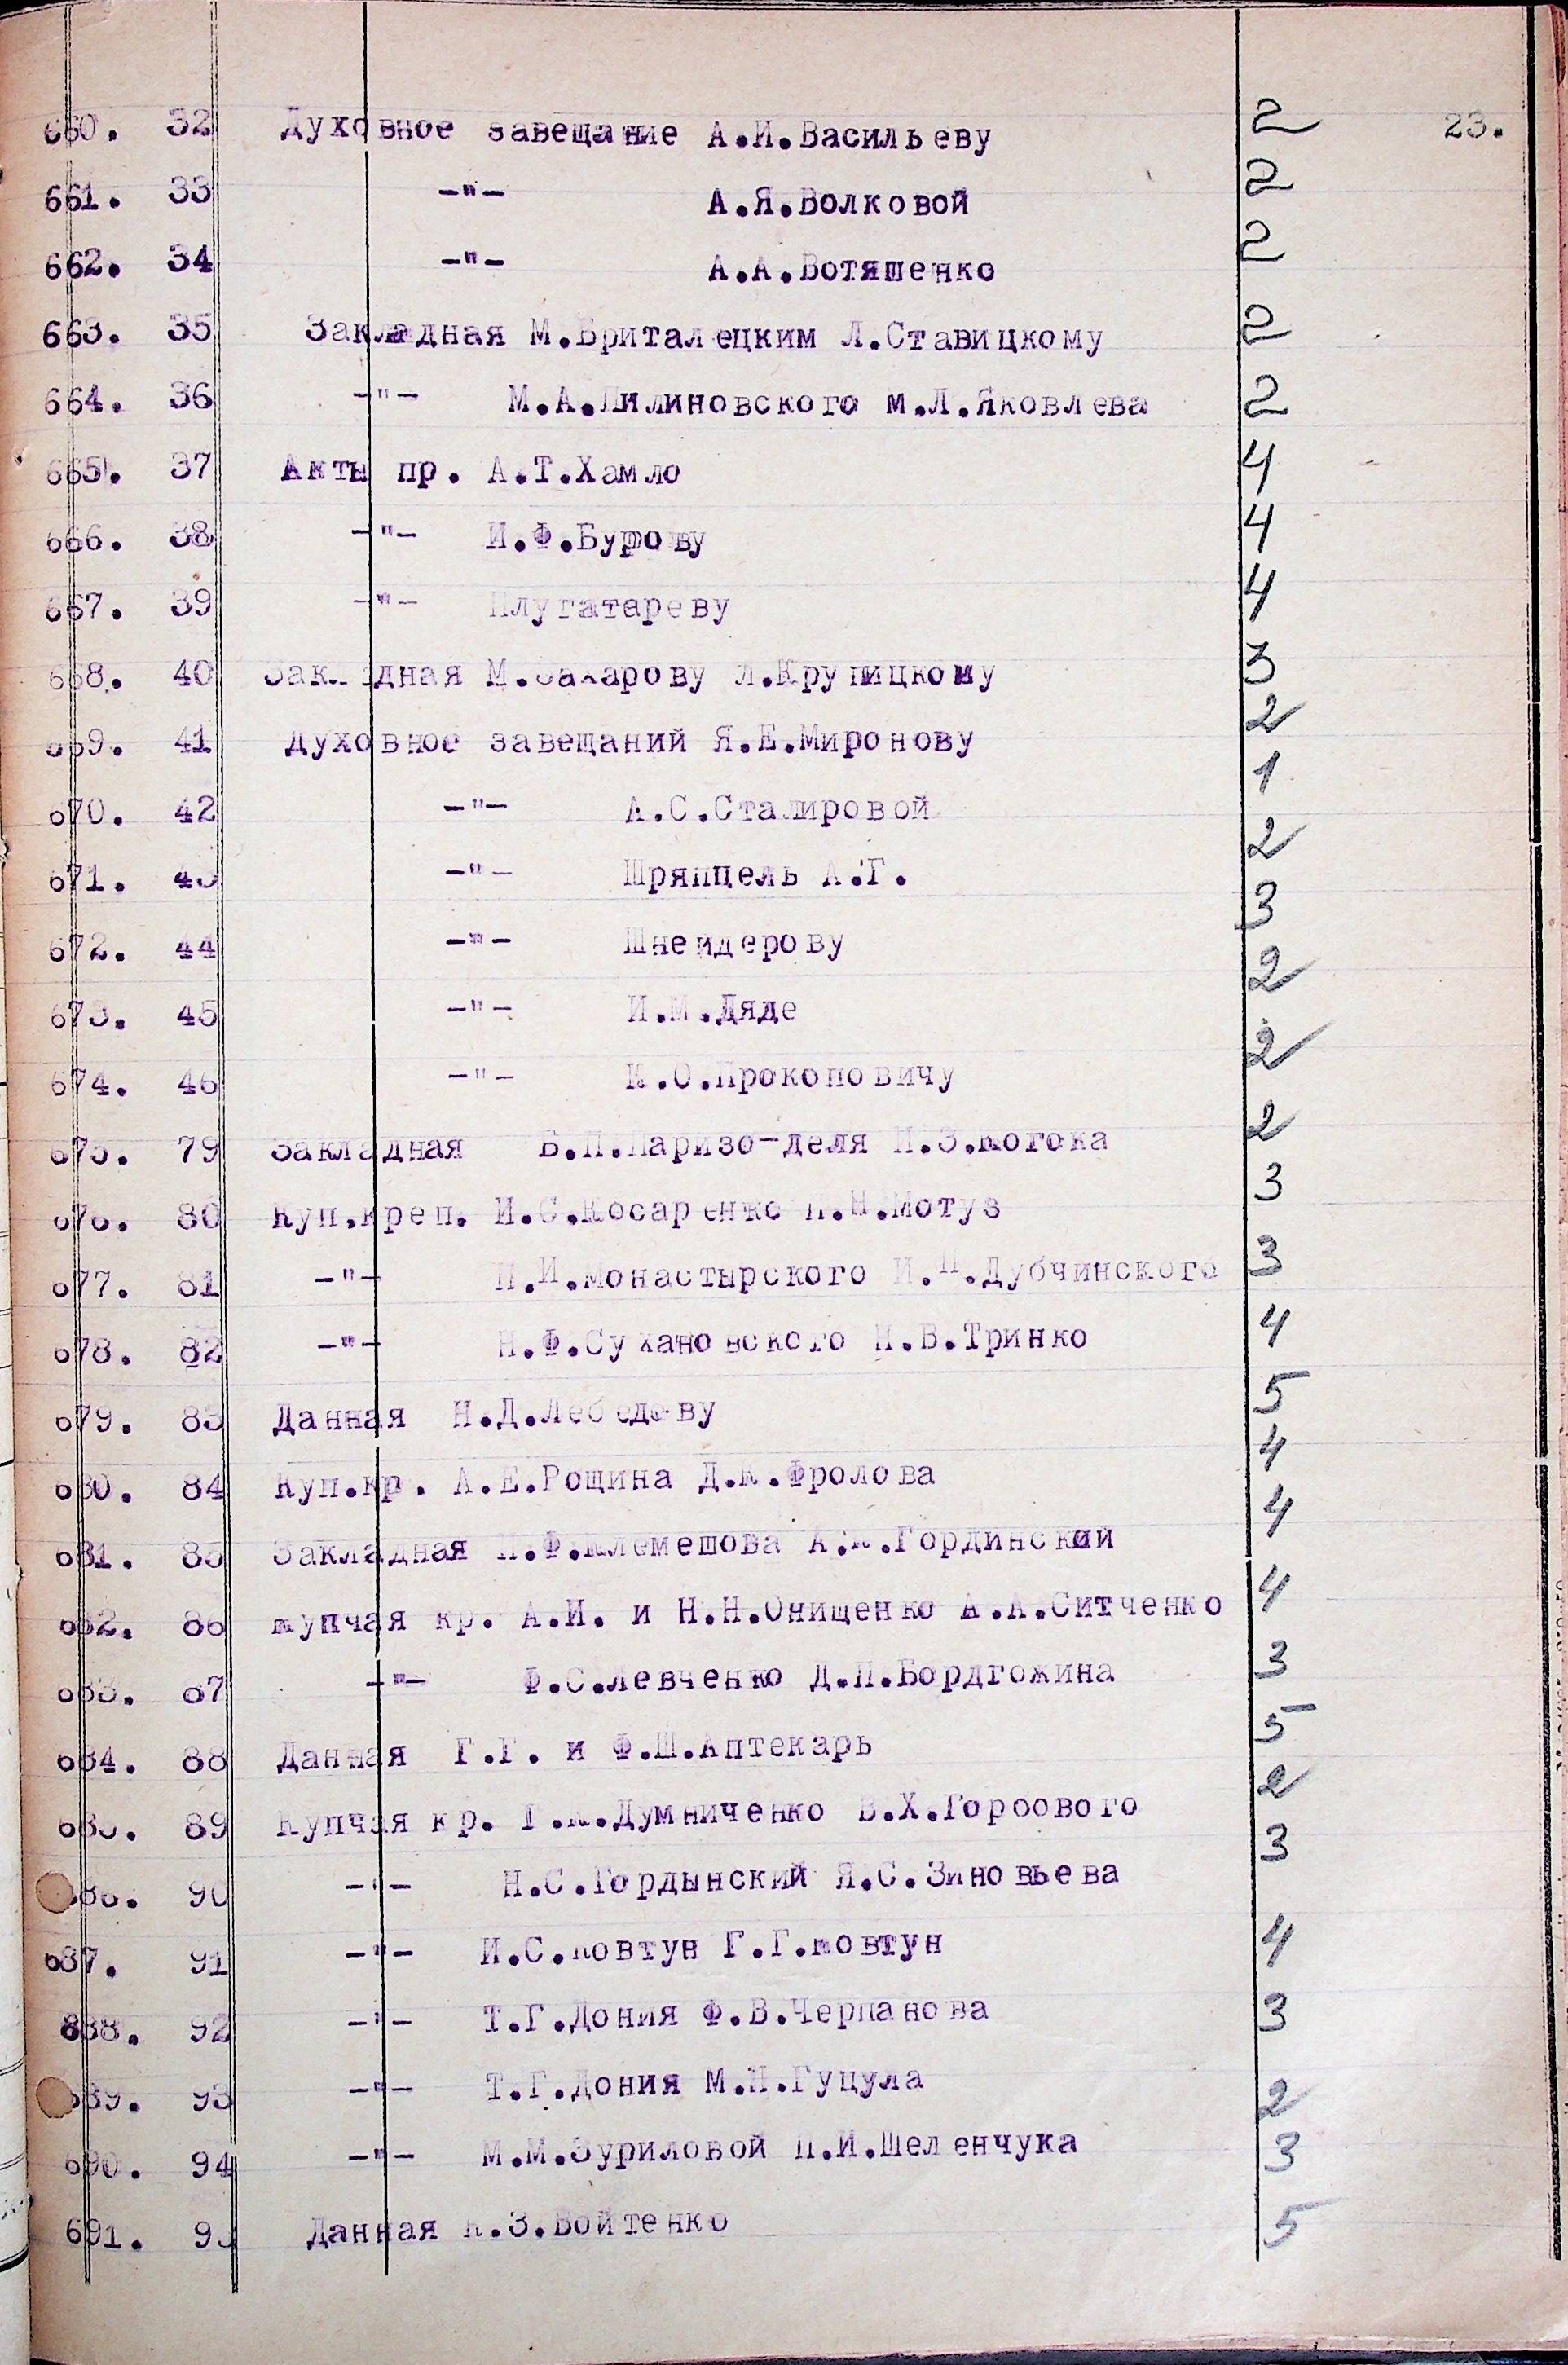 23.
660. 32 Духовное завещание А.И.Васильеву 2
661. 33 -"- А.Я.Волковой 2
662. 34 -"- А.А.Вотяшенко 2
663. 35 Закладная М.Бриталецким Л.Ставицкому 2
664. 36 -"- М.А.Лилиновского М.Л.Яковлева 2
665. 37 Акты пр. А.Т.Хамло 4
666. 38 -"- И.Ф.Бурову 4
667. 39 -"- Плугатареву 4
668. 40 Закладная М.Захарову Л.Крупицкому 3
669. 41 Духовное завещаний Я.Е.Миронову 2
670. 42 -"- А.С.Сталировой 1
671. 43 -"- Шряпцель А.Г. 2
672. 44 -"- Шнейдерову 3
673. 45 -"- И.М.Дяде 2
674. 46 -"- К.О.Прокоповичу 2
675. 79 Закладная Б.П.Паризо-деля П.З.Когока 2
676. 80 Куп.креп. И.С.Косаренко П.Н.Мотуз 3
677. 81 -"- П.И.Монастырского И.П.Дубчинского 3
678. 82 -"- Н.Ф.Сухановского И.В.Тринко 4
679. 83 Данная Н.Д.Лебедеву 5
680. 84 Куп.кр. А.Е.Рощина Д.К.Фролова 4
681. 85 Закладная П.Ф.Клемешова А.К.Гординский 4
682. 86 Купчая кр. А.И. и Н.Н.Онищенко А.А.Ситченко 4
683. 87 -"- Ф.С.Левченко Д.П.Бордгожина 3
684. 88 Данная Г.Г. и Ф.Ш.Аптекарь 5
685. 89 Купчая кр. Г.К.Думниченко В.Х.Горбового 2
686. 90 -"- Н.С.Гордынский Я.С.Зиновьева 3
687. 91 -"- И.С.Ковтун Г.Г.Ковтун 4
688. 92 -"- Т.Г.Дония Ф.В.Черпанова 3
689. 93 -"- Т.Г.Дония М.Н.Гуцула 2
690. 94 -"- М.М.Зуриловой П.И.Шеленчука 3
691. 95 Данная К.З.Войтенко 5